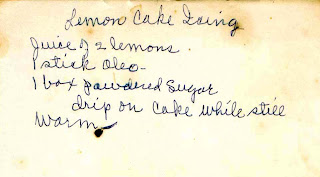 Lemon Cake Icing
Juice of 2 lemons.
1 stick Oleo-
1 box powdered Sugar
drip on Cake while still
Warm